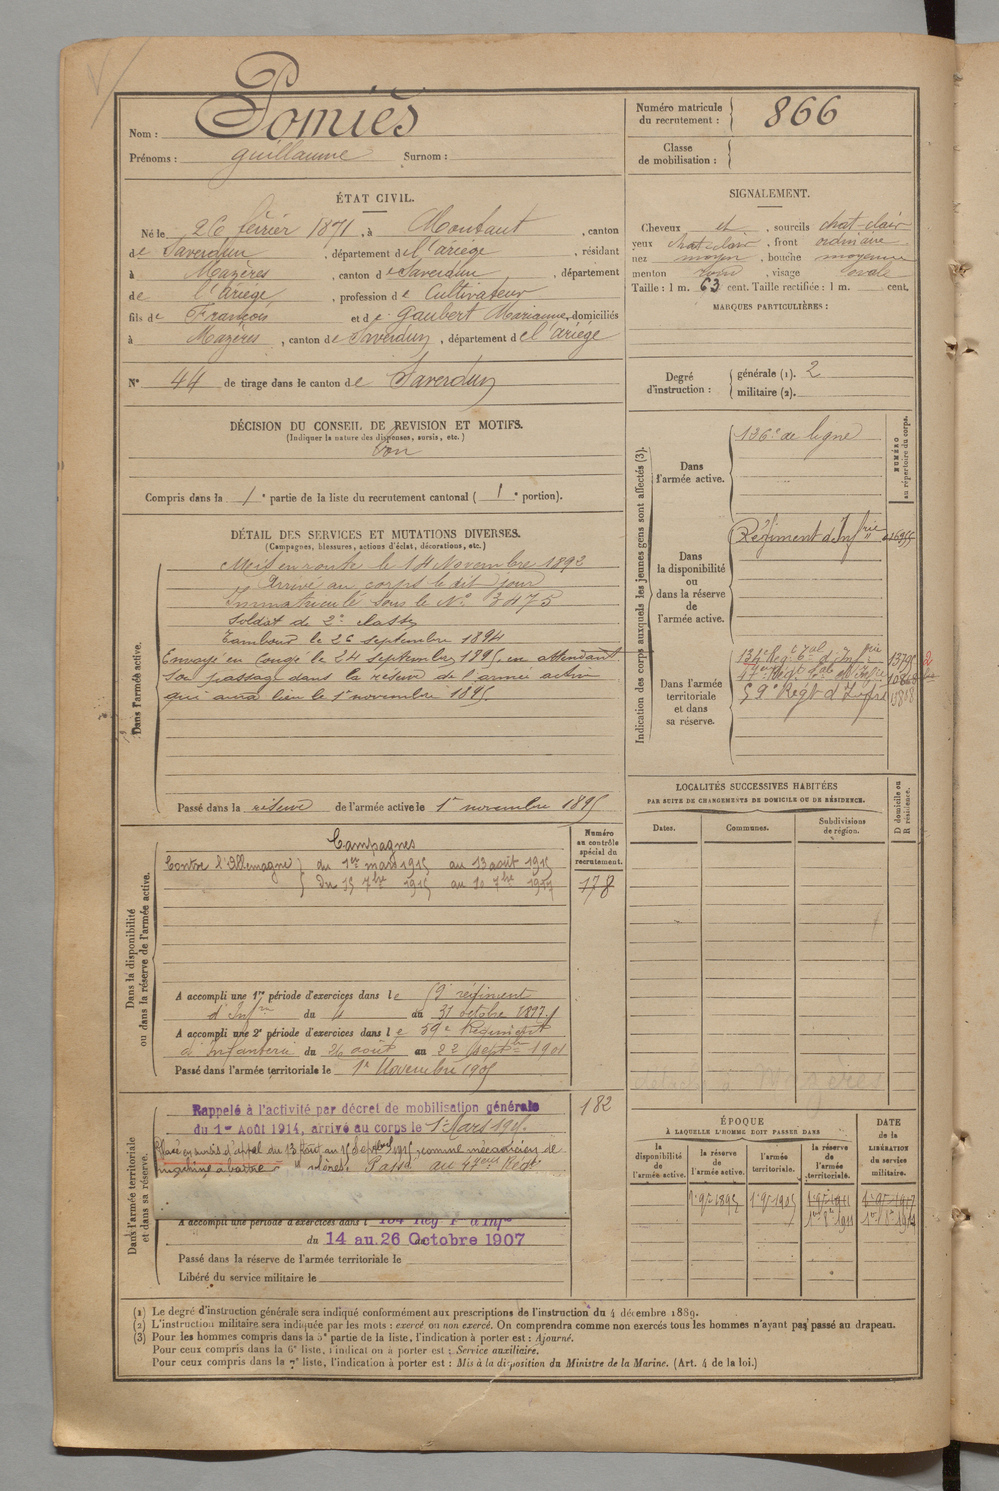 Nom : Pomiès
Prénoms : Guillaume Surnom :
Numéro matricule du recrutement : 866
Classe de mobilisation :
ÉTAT CIVIL.
Né le 26 février 1871, à Montaut, canton
de Saverdun, département de l'ariège, résidant
à Mazères, canton de Saverdun, département
de l'ariège, profession de Cultivateur
fils de François et de Gaubert Marianne, domiciliés
à Mazères, canton de Saverdun, département de l'ariège
N° 44 de tirage dans le canton de Saverdun
SIGNALEMENT.
Cheveux et, sourcils chat-clair
yeux chat-clair, front ordinaire
nez moyen, bouche moyenne
menton rond, visage ovale
Taille : 1 m. 63 cent. Taille rectifiée : 1 m. cent.
MARQUES PARTICULIÈRES :
Degré d'instruction : générale (1). 2
militaire (2).
DÉCISION DU CONSEIL DE REVISION ET MOTIFS.
(Indiquer la nature des dispenses, sursis, etc.)
Bon
Compris dans la 1e partie de la liste du recrutement cantonal ( 1e portion).
DÉTAIL DES SERVICES ET MUTATIONS DIVERSES.
(Campagnes, blessures, actions d'éclat, décorations, etc.)
Dans l'armée active.
Mis en route le 14 Novembre 1892
Arrivé au corps le dit jour
Immatriculé sous le N° 3475
Soldat de 2e classe
Tambour le 26 septembre 1894
Envoyé en Congé le 24 septembre 1895, en attendant
son passage dans la réserve de l'armée active
qui aura lieu le 1er novembre 1895.
Passé dans la réserve de l'armée active le 1er novembre 1895
Indication des corps auxquels les jeunes gens sont affectés (3).
NUMÉRO au répertoire du corps.
Dans l'armée active.
136e de ligne
Dans la disponibilité ou dans la réserve de l'armée active.
Régiment d'Infrie
Dans l'armée territoriale et dans sa réserve.
134e Régt Tal d'Infrie
59e Régt d'Infrie
LOCALITÉS SUCCESSIVES HABITÉES
PAR SUITE DE CHANGEMENTS DE DOMICILE OU DE RÉSIDENCE.
Dates. Communes. Subdivisions de région. D domicile ou R résidence.
Dans la disponibilité ou dans la réserve de l'armée active.
Numéro au contrôle spécial du recrutement.
178
Campagnes
Contre l'Allemagne du 1er mars 1915 au 13 août 1915
du 15 7bre 1915 au 10 7bre 1917
A accompli une 1re période d'exercices dans le 59e régiment
d'Infie du 4 au 31 octobre
A accompli une 2e période d'exercices dans le 59e Régiment
d'Infanterie du 26 août au 22 septbre 1901
Passé dans l'armée territoriale le 1er Novembre 1905
Dans l'armée territoriale et dans sa réserve.
182
Rappelé à l'activité par décret de mobilisation générale
du 1er Août 1914, arrivé au corps le 1er Mars 1915.
Placé en sursis d'appel du 13 Août au 15 Septbre 1915 comme mécanicien de
machine à battre à Mazères. Passé au Régt
A accompli une période d'exercices dans l 134 Rég T. d'Infie
du 14 au 26 Octobre 1907
Passé dans la réserve de l'armée territoriale le
Libéré du service militaire le
ÉPOQUE
À LAQUELLE L'HOMME DOIT PASSER DANS
la disponibilité de l'armée active. la réserve de l'armée active. l'armée territoriale. la réserve de l'armée territoriale.
DATE de la LIBÉRATION du service militaire.
1er 9bre 1895 1er 9bre 1905 1er 9bre 1911 1er 9bre 1917
(1) Le degré d'instruction générale sera indiqué conformément aux prescriptions de l'instruction du 4 décembre 1889.
(2) L'instruction militaire sera indiquée par les mots : exercé ou non exercé. On comprendra comme non exercés tous les hommes n'ayant pas passé au drapeau.
(3) Pour les hommes compris dans la 5e partie de la liste, l'indication à porter est : Ajourné.
Pour ceux compris dans la 6e liste, l'indication à porter est : Service auxiliaire.
Pour ceux compris dans la 7e liste, l'indication à porter est : Mis à la disposition du Ministre de la Marine. (Art. 4 de la loi.)